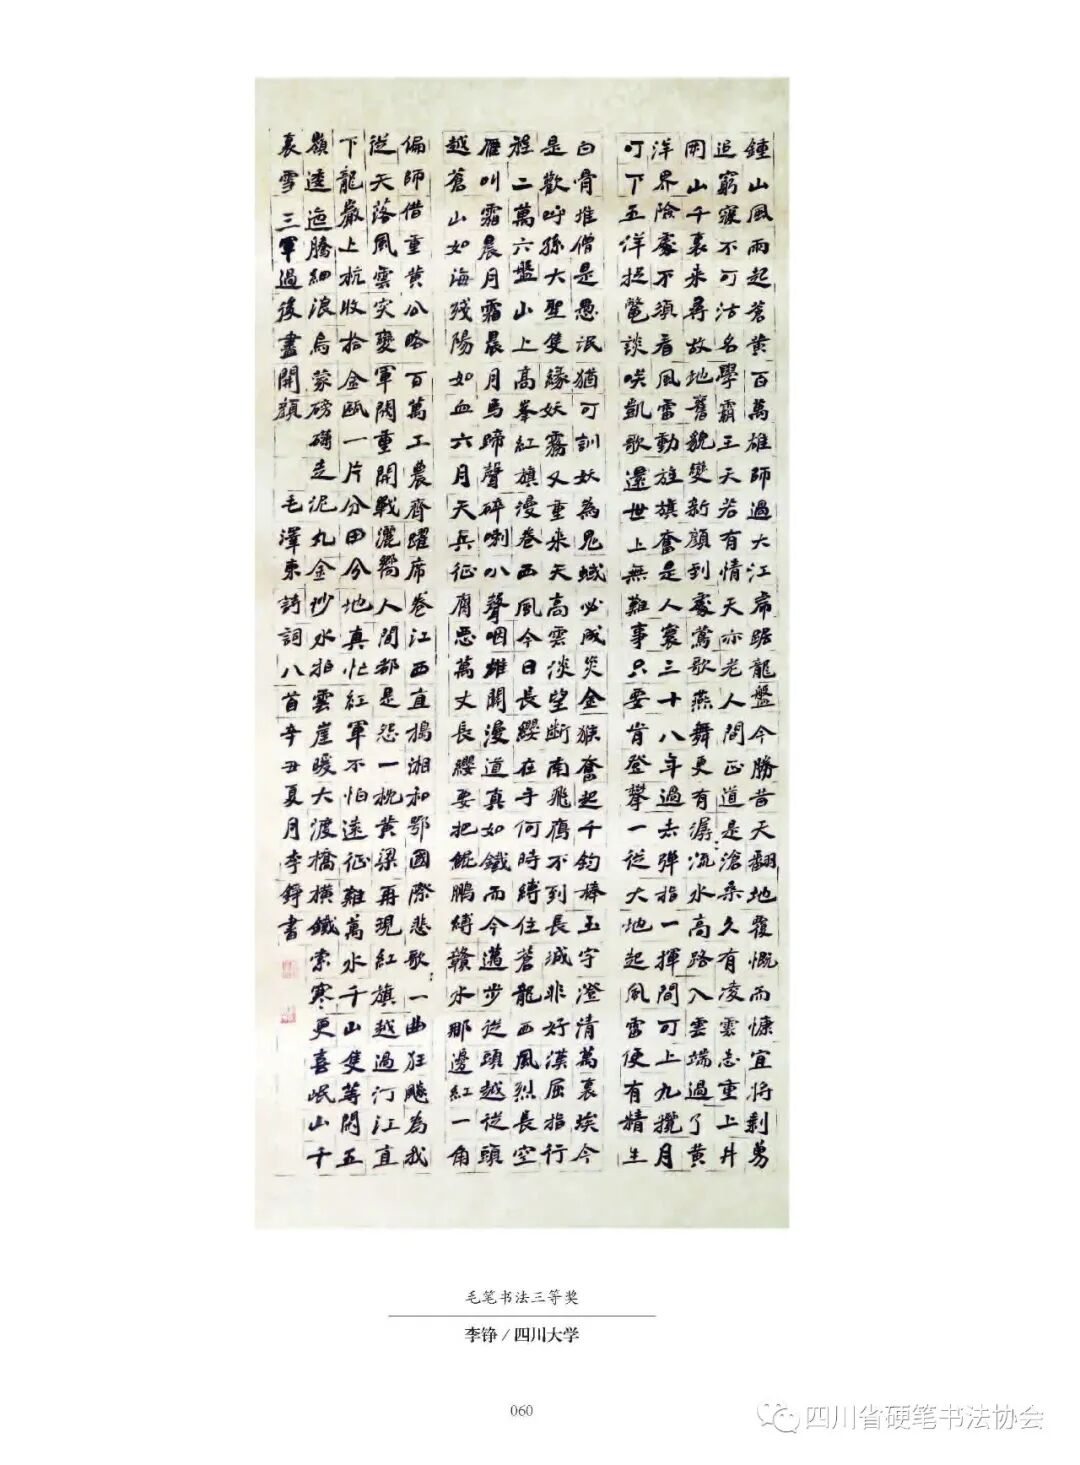 鍾山風雨起蒼黃百萬雄師過大江虎踞龍盤今勝昔天翻地覆慨而慷宜將剩勇
追窮寇不可沽名學霸王天若有情天亦老人間正道是滄桑久有凌雲志重上井
岡山千裏來尋故地舊貌變新顏到處鶯歌燕舞更有潺:流水高路入雲端過了黃
洋界險處不須看風雷動旌旗奮是人寰三十八年過去彈指一揮間可上九攬月
可下五洋捉鱉談笑凱歌還世上無難事只要肯登攀一從大地起風雷便有精生
白骨堆僧是愚氓猶可訓妖為鬼蜮必成災金猴奮起千鈞棒玉宇澄清萬裏埃今
是歡呼孫大聖隻緣妖霧又重來天高雲淡望斷南飛雁不到長城非好漢屈指行
程二萬六盤山上高峯紅旗漫卷西風今日長纓在手何時縛住蒼龍西風烈長空
雁叫霜晨月霜晨月馬蹄聲碎喇叭聲咽雄關漫道真如鐵而今邁步從頭越從頭
越蒼山如海殘陽如血六月天兵征腐惡萬丈長纓要把鯤鵬縛贛水那邊紅一角
偏師借重黃公略百萬工農齊躍席卷江西直搗湘和鄂國際悲歌:一曲狂飆為我
從天落風雲突變軍閥重開戰灑嚮人間都是怨一枕黃粱再現紅旗越過汀江直
下龍巖上杭收拾金甌一片分田分地真忙紅軍不怕遠征難萬水千山隻等閑五
嶺逶迤騰細浪烏蒙磅礴走泥丸金沙水拍雲崖暖大渡橋橫鐵索寒更喜岷山千
裏雪三軍過後盡開顏 毛澤東詩詞八首辛丑夏月李錚書
毛笔书法三等奖
李铮 / 四川大学
060
四川省硬笔书法协会